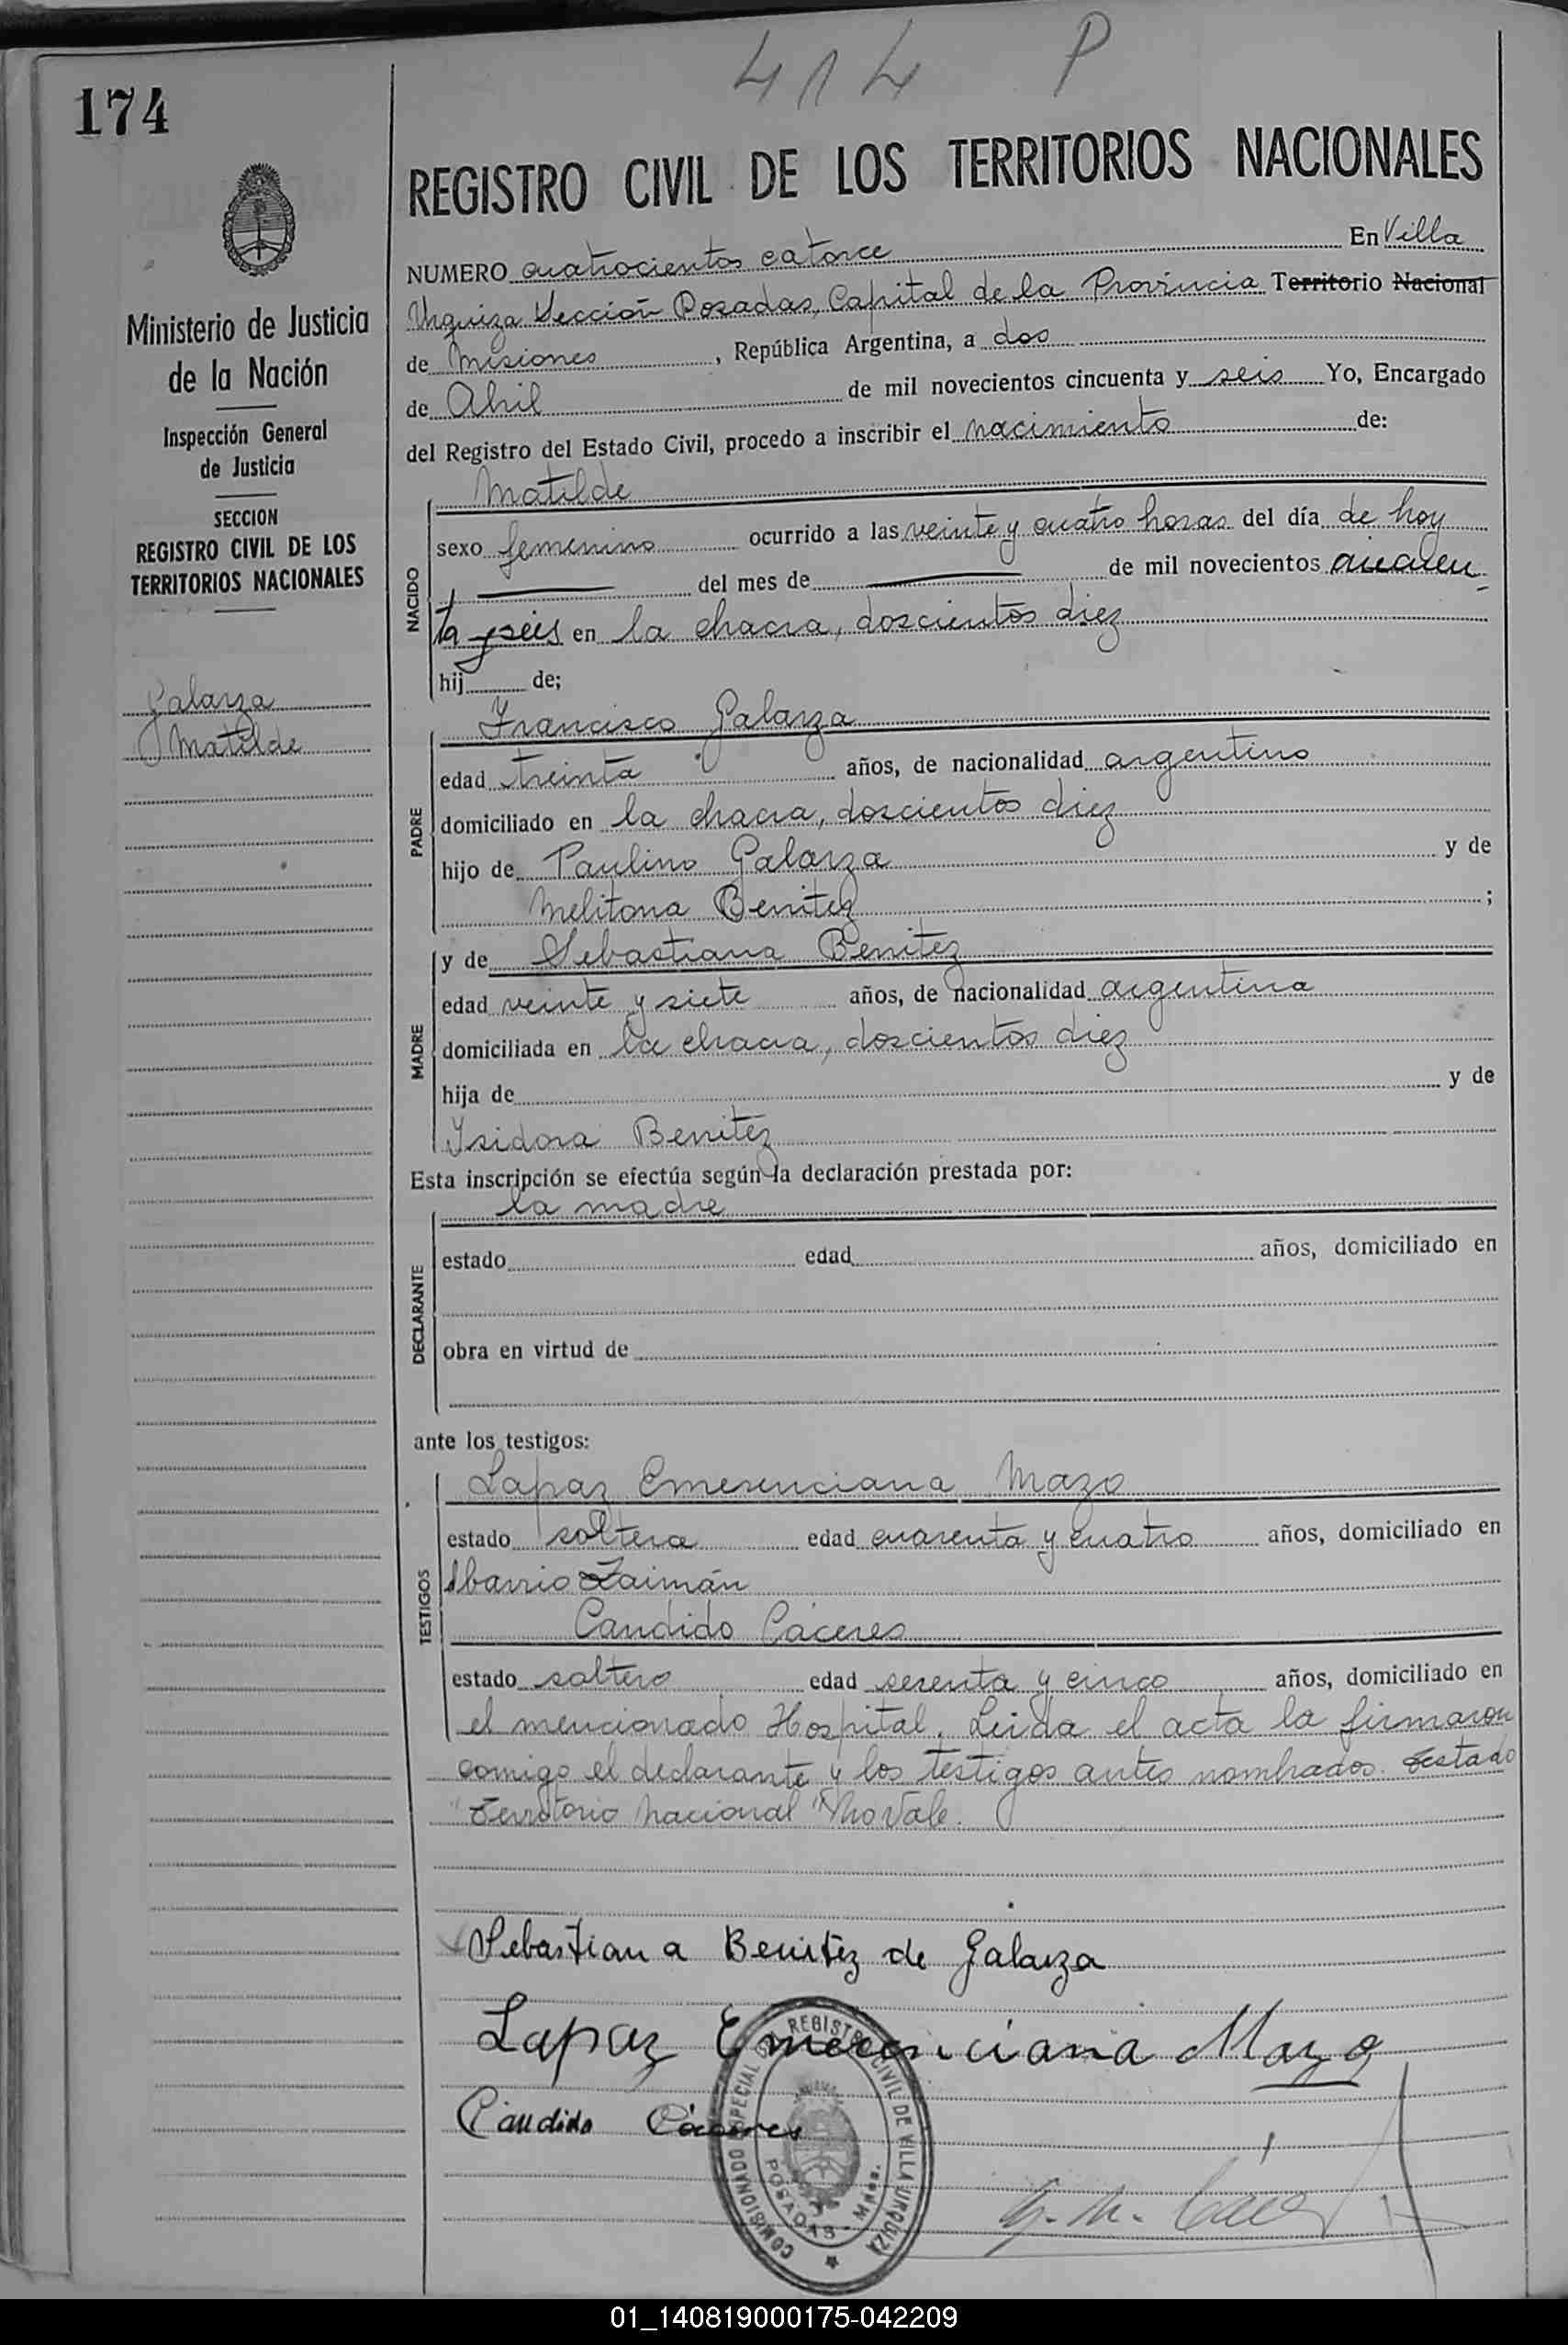 414 P
174
REGISTRO CIVIL DE LOS TERRITORIOS NACIONALES
Ministerio de Justicia
de la Nación
Inspección General
de Justicia
SECCION
REGISTRO CIVIL DE LOS
TERRITORIOS NACIONALES
Galarza
Matilde
NUMERO cuatrocientos catorce En Villa
Urquiza Sección Posadas, Capital de la Provincia Territorio Nacional
de Misiones, República Argentina, a dos
de Abril de mil novecientos cincuenta y seis Yo, Encargado
del Registro del Estado Civil, procedo a inscribir el nacimiento de:
NACIDO
Matilde
sexo femenino ocurrido a las veinte y cuatro horas del día de hoy
del mes de de mil novecientos cincuen
ta y seis en la chacra, doscientos diez
hij de;
PADRE
Francisco Galarza
edad treinta años, de nacionalidad argentino
domiciliado en la chacra, doscientos diez
hijo de Paulino Galarza y de
Melitona Benitez ;
MADRE
y de Sebastiana Benitez
edad veinte y siete años, de nacionalidad argentina
domiciliada en la chacra, doscientos diez
hija de y de
Isidora Benitez
Esta inscripción se efectúa según la declaración prestada por:
DECLARANTE
la madre
estado edad años, domiciliado en
obra en virtud de
ante los testigos:
TESTIGOS
Lapaz Emerenciana Mazo
estado soltera edad cuarenta y cuatro años, domiciliado en
barrio Zaimán
Candido Cáceres
estado soltero edad sesenta y cinco años, domiciliado en
el mencionado Hospital. Leida el acta la firmaron
comigo el declarante y los testigos antes nombrados. Testado
"Territorio Nacional" No Vale.
Sebastiana Benitez de Galarza
Lapaz Emerenciana Mazo
Candido Cáceres
COMISIONADO ESPECIAL DEL REGISTRO CIVIL DE VILLA URQUIZA
POSADAS - Mnes.
01_140819000175-042209